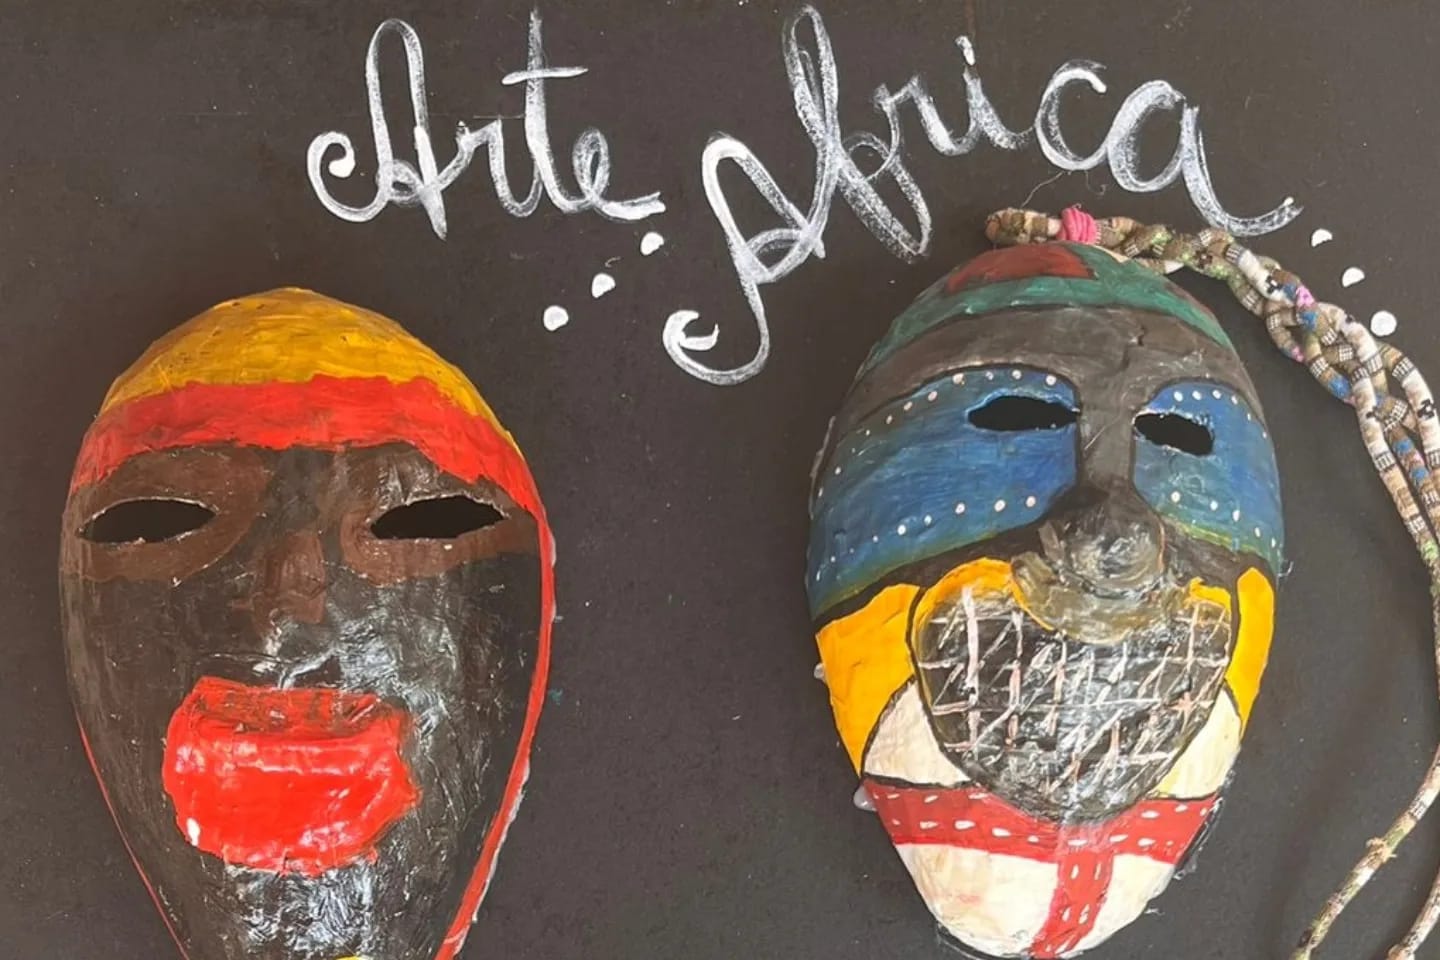 Arte Africa